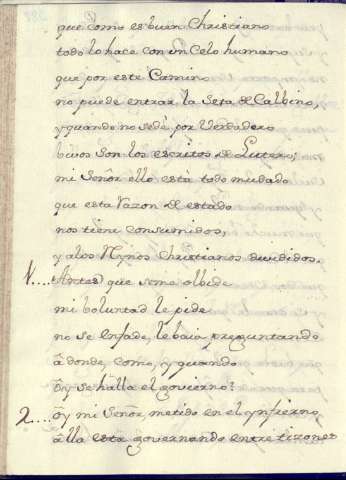 que como es buen Christiano
todo lo hace con un Celo humano
que por este Camino
no puede entrar la Seta de Calbino,
y quando no sedè por Verdadero
bivos son los escritos de Lutero;
mi Señor ello està todo mudado
que esta Razon de estado
nos tiene consumidos,
y a los Reynos Christianos dividídos.
1.... Antes que se me olbide
mi boluntad le pide
no se enfade, le baia preguntando
â donde, como, y quando
ôy se halla el govierno?
2.... ôy mi Señor, metido en el ynfierno,
âlla està governando entre tizones